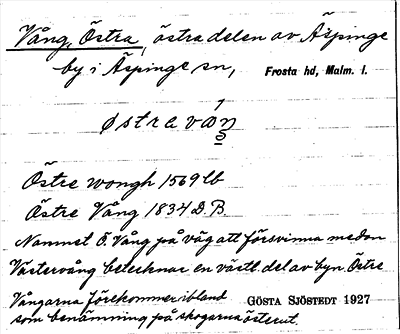 Vång, Östra, östra delen av Äspinge
by i Äspinge sn, Frosta hd, Malm. l.
østravaŋ
Östre wongh 1569 lb
Östre Vång 1834 D.B.
Namnet Ö. Vång på väg att försvinna medan
Västervång betecknar en västl. del av byn. Östre
Vångarna förekommer ibland GÖSTA SJÖSTEDT 1927
som benämning på skogarna österut.